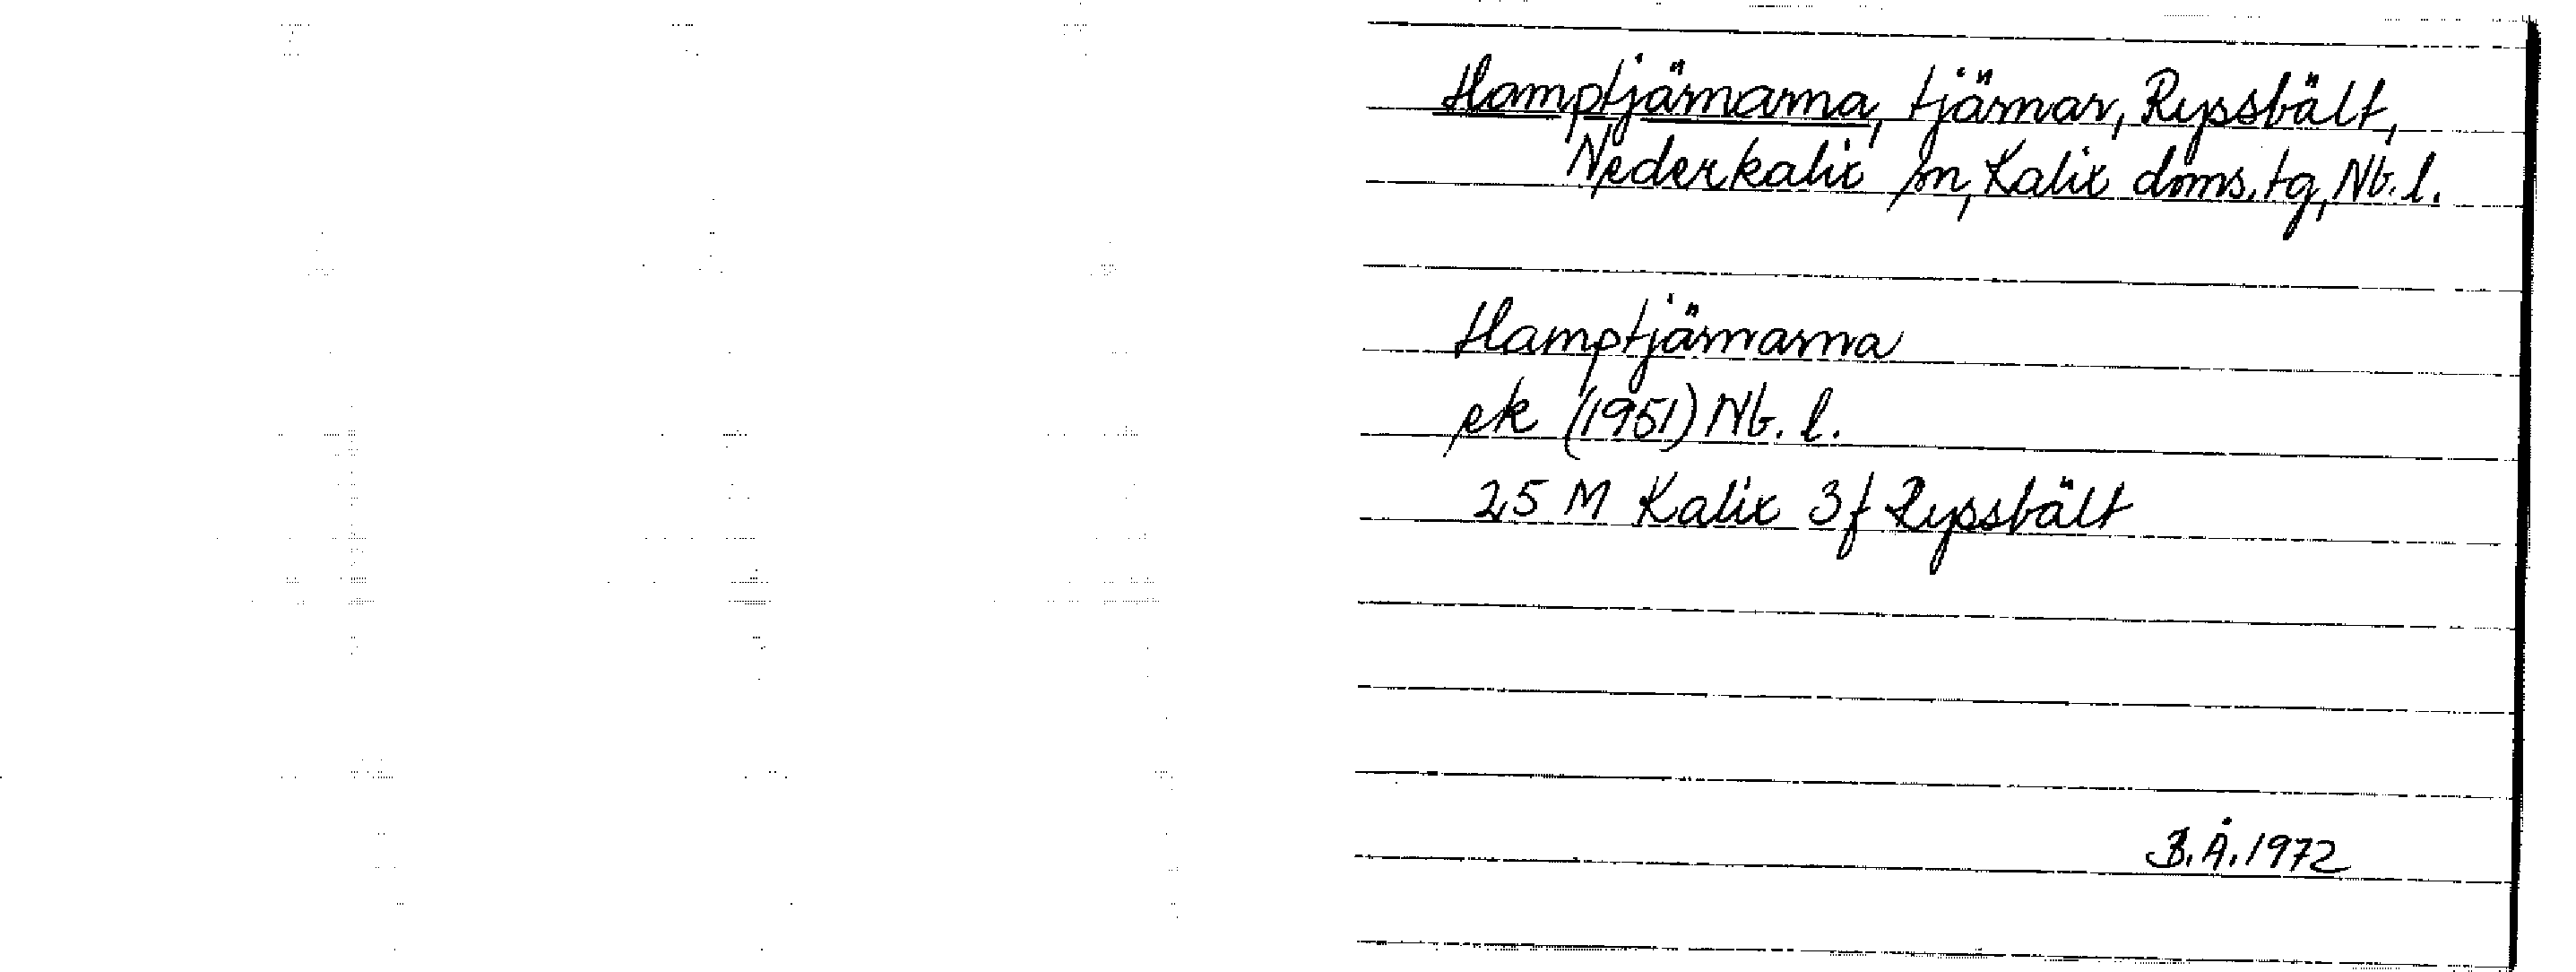 Hamptjärnarna, tjärnar, Ryssbält,
Nederkalix sn, Kalix doms. tg, Nb. l.
Hamptjärnarna
ek (1951) Nb. l.
25 M Kalix 3f Ryssbält
B.Å. 1972